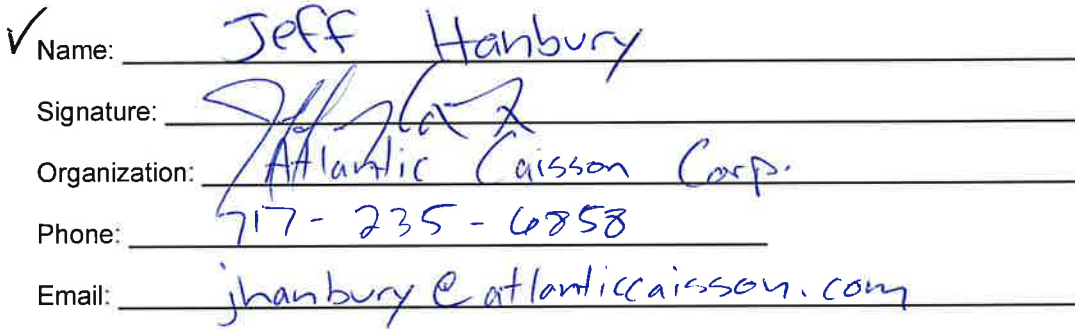 ✓ Name: Jeff Hanbury
Signature:
Organization: Atlantic Caisson Corp.
Phone: 717-235-6858
Email: jhanbury@atlanticcaisson.com